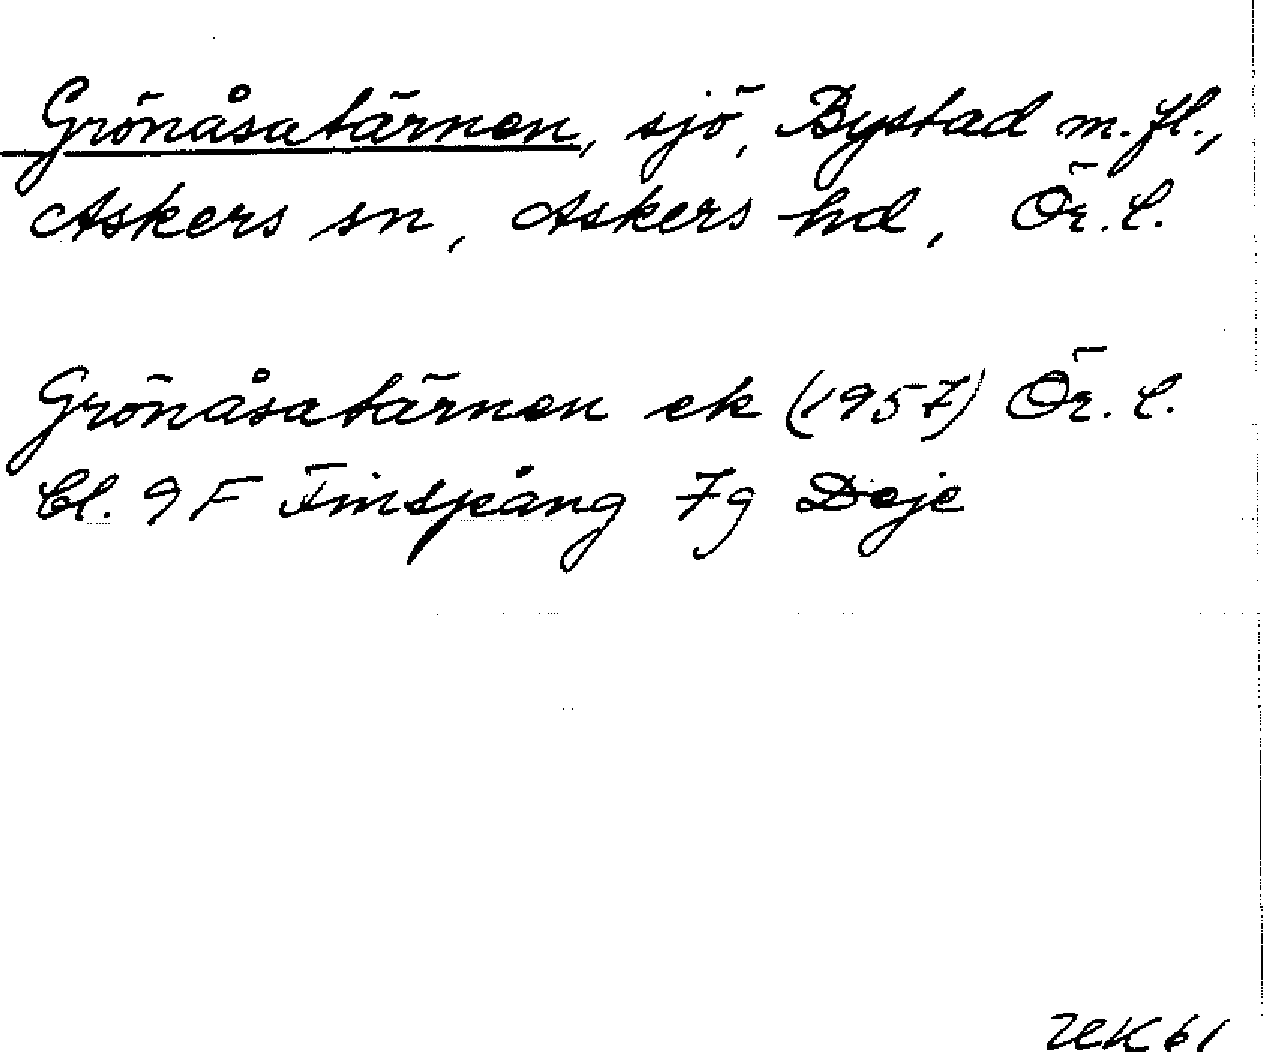 Grönåsatärnen, sjö, Bystad m. fl.,
Askers sn, Askers hd, Ör. l.
Grönåsatärnen ek (1957) Ör. l.
bl. 9F Finspång 7g Deje
UK 61